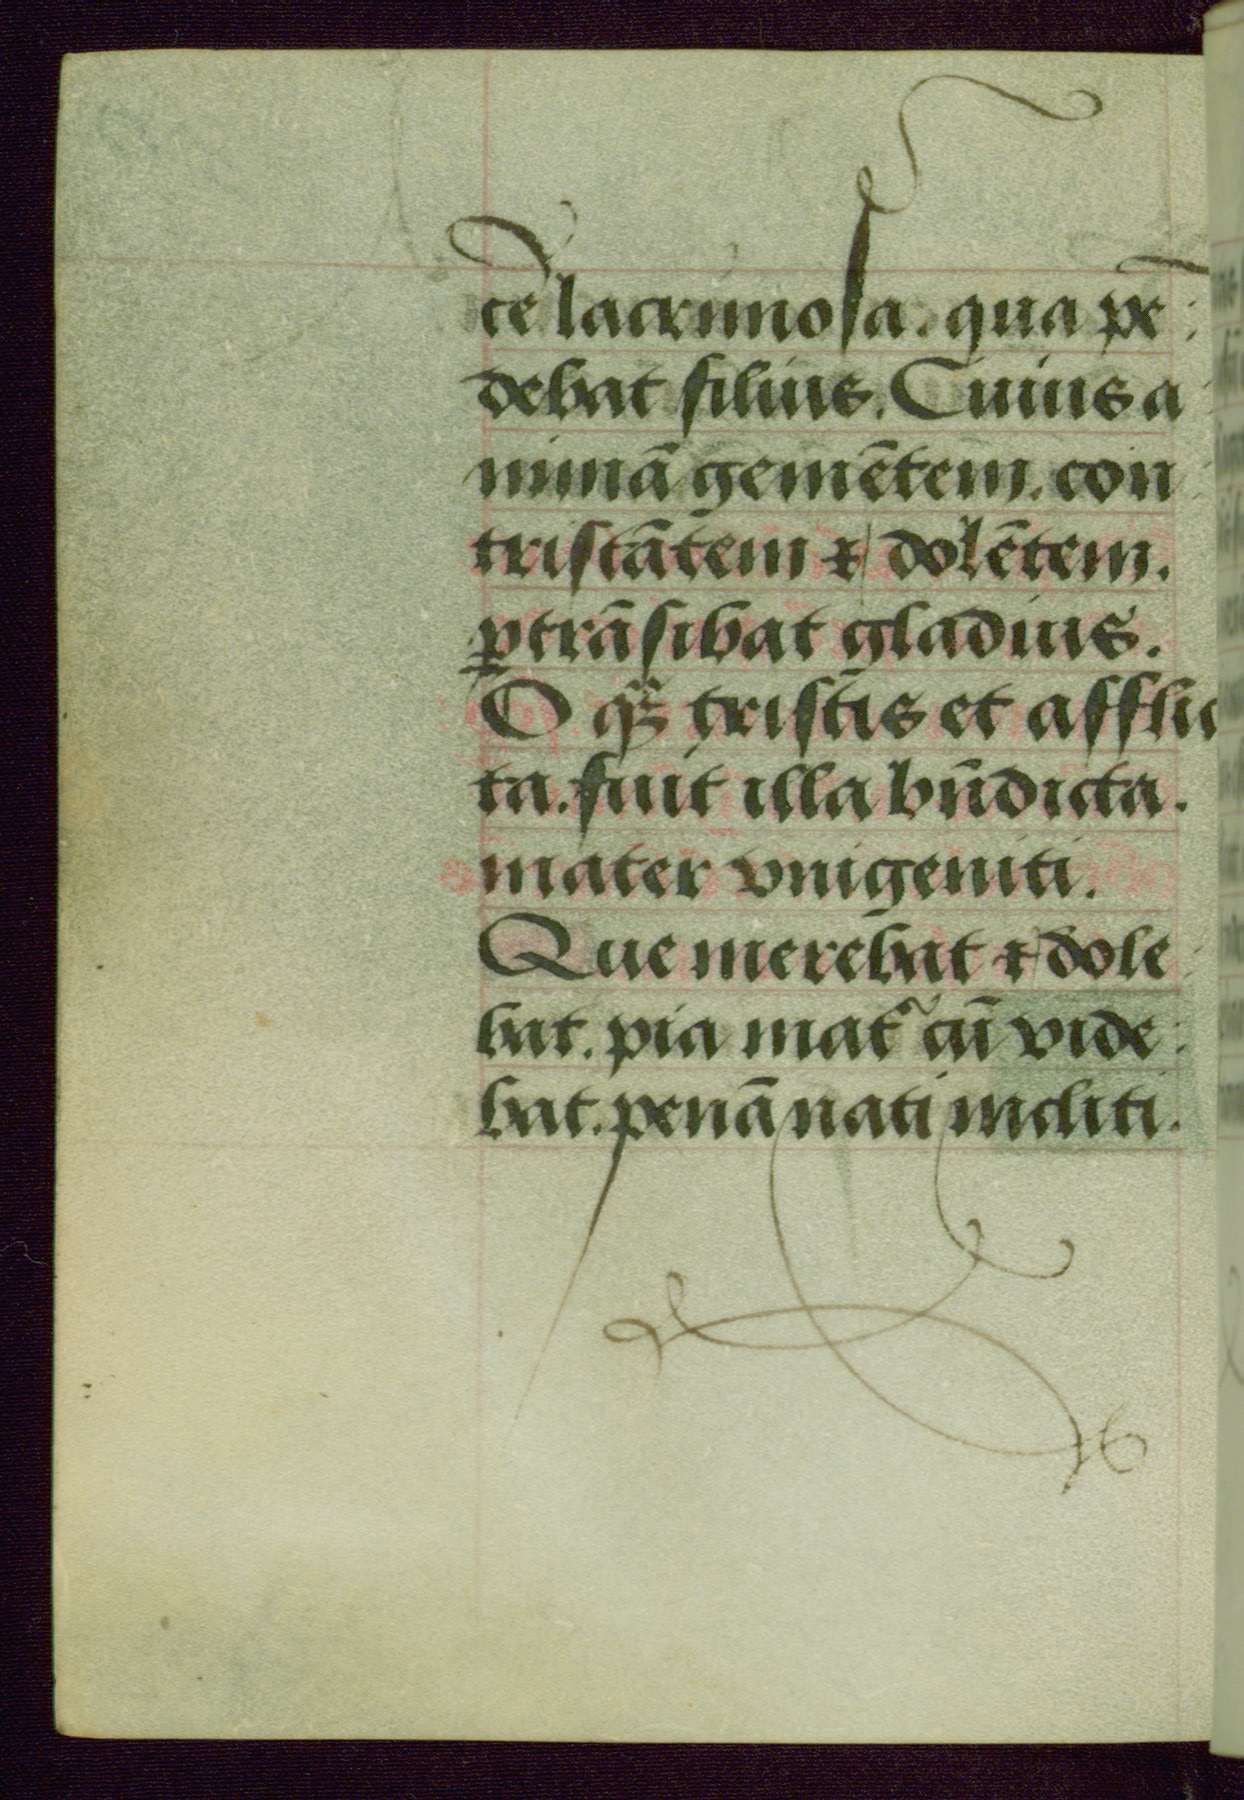 cẽ lacrimosa. qua pẽ
debat filius. Cuius a
nimã gemẽtem. con
tristãtem ⁊ dolẽtem.
ꝑtrãsibat gladius.
O qꝫ̃ tristis et afflic
ta. fuit illa bñdicta.
mater vnigeniti.
Que merebat ⁊ dole
bat. pia mat̃ cũ vide
bat. penã nati incliti.